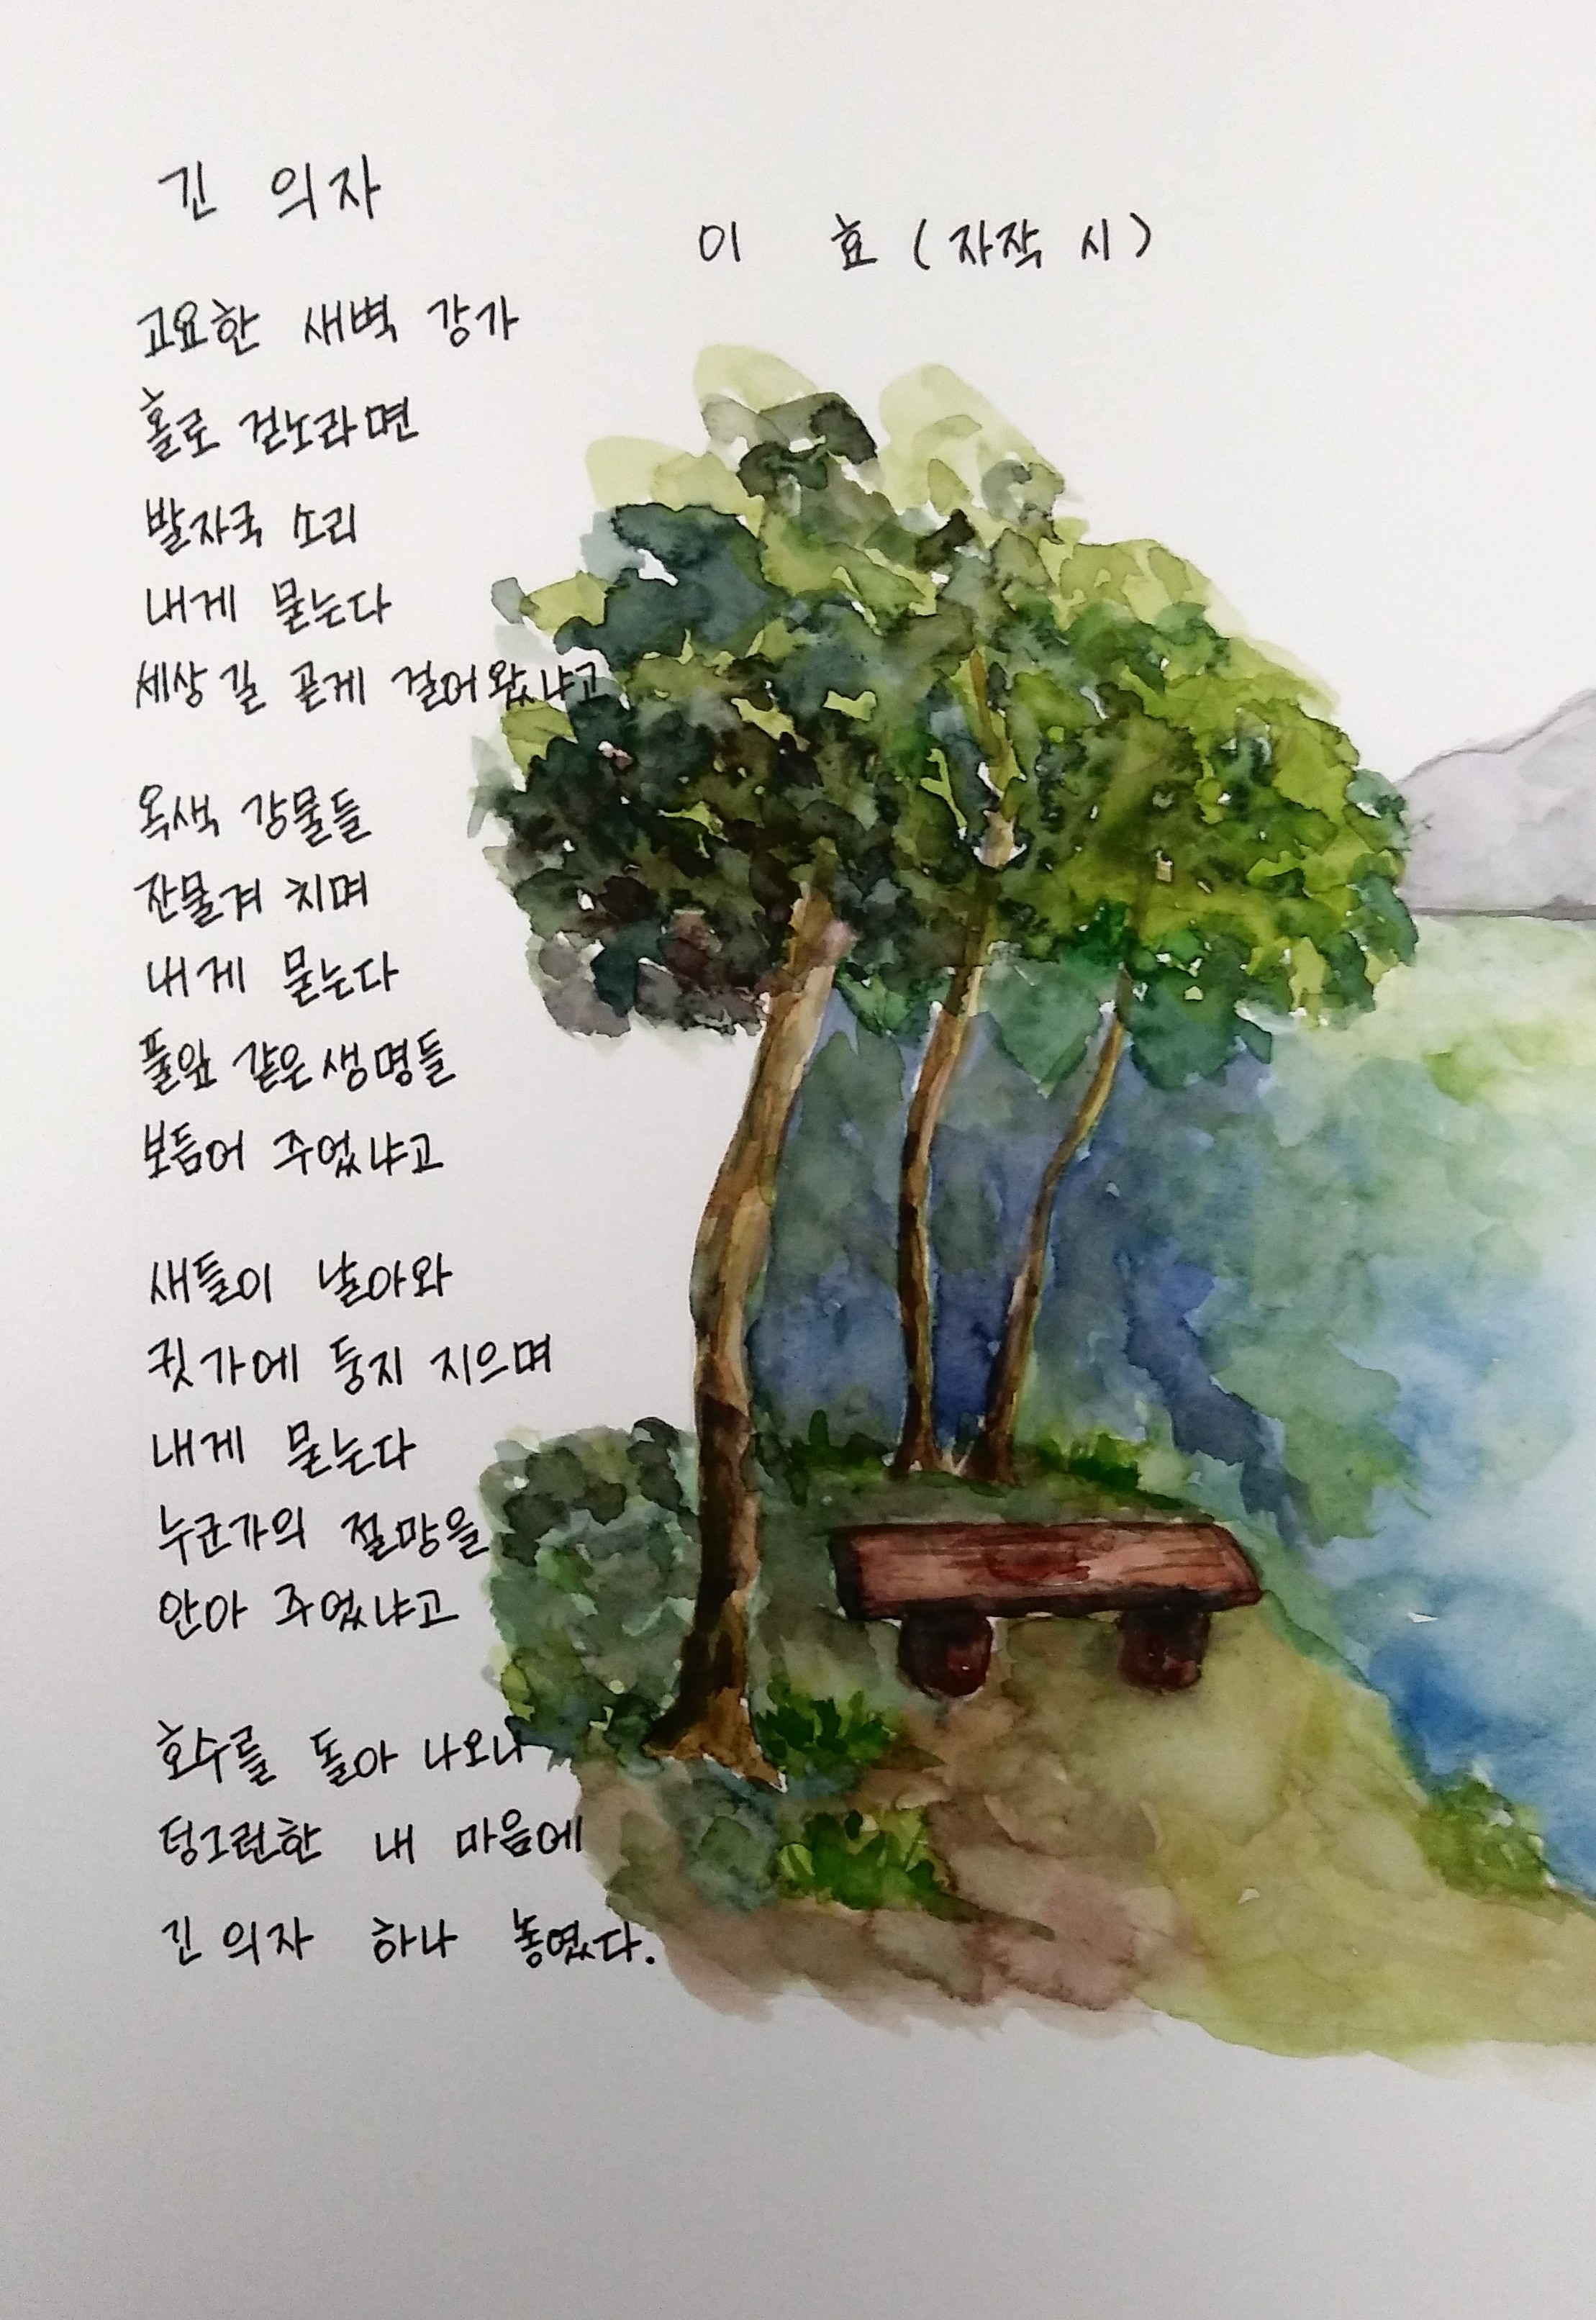 긴 의자
이 효 (자작 시)
고요한 새벽 강가
홀로 걷노라면
발자국 소리
내게 묻는다
세상 길 곧게 걸어왔냐고
옥색 강물들
잔물겨 치며
내게 묻는다
풀잎 같은 생명들
보듬어 주었냐고
새들이 날아와
귓가에 둥지 지으며
내게 묻는다
누군가의 절망을
안아 주었냐고
호수를 돌아 나오니
텅그런한 내 마음에
긴 의자 하나 놓였다.